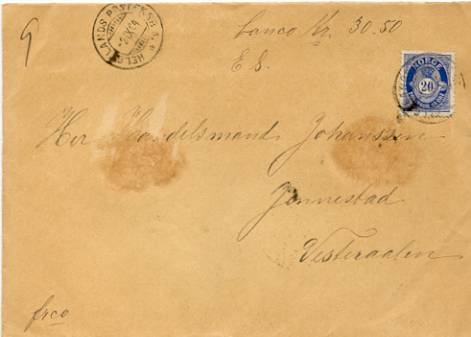 9
HELGELANDS POSTEKSP. B
2 X 04
Lanco Nr. 30.50
E S.
NORGE
20
Her Handelsmand Johanssen
Jennestad
Vesteraalen
frco